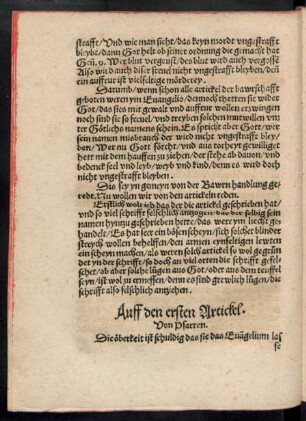 strafft/ Vnd wie man sicht/ das keyn mordt vngestrafft
bleybt/ dann Got helt ob seiner ordnung die gemacht hat
Geñ. 9. Wer blut vergeust/ des blut wird auch vergossẽ
Also wird auch diser freuel nicht vngestrafft bleyben/ deñ
ein auffrur ist vielfeltige mörderey.
Darumb/ wenn schon alle artickel der bawrschafft
geboten weren ym Euangelio/ dennocht thetten sie wider
Got/ das sies mit gewalt vnd auffrur wollen erzwingen
noch sind sie so freuel/ vnd treyben solchen mutwillen vn-
ter Götlichs namens schein. Es spricht aber Gott/ wer
sein namen misbraucht der wird nicht vngestrafft bley/
ben/ Wer nu Gott förcht/ vnd aus torheyt gewilliget
hett mit dem hauffen zu ziehen/ der stehe ab dauon/ vnd
bedenck seel vnd leyb/ weyb vnd kind/ denn es wird doch
nicht vngestrafft bleyben.
Dis sey yn gemeyn von der Bawrn handlung ge-
redt. Nu wollen wir von den artickeln reden.
Erstlich wolt ich das der die artickel geschrieben hat/
vnd so viel schrifft felschlich antzogen/ vor der selbig sein
namen hyntzu geschrieben hette. das wer ym liecht ge-
handelt/ Es hat seer ein bösen scheyn/ sich solcher blinder
streych wollen behelffen/ den armen eynfeltigen lewten
ein scheyn machen/ als weren solch artickel so wol gegrün
det yn der schrifft/ so doch an viel orten die schrifft gefelsch-
schet/ ob aber solche lügen aus Got/ oder aus dem teuffel
seyn/ ist wol zu ermessen/ denn es sind grewlich lügen/ die
schrifft also felschlich antziehen.
Auff den ersten Artickel.
Von Pfarren.
Die öberkeit ist schuldig das sie das Euãgelium las
se